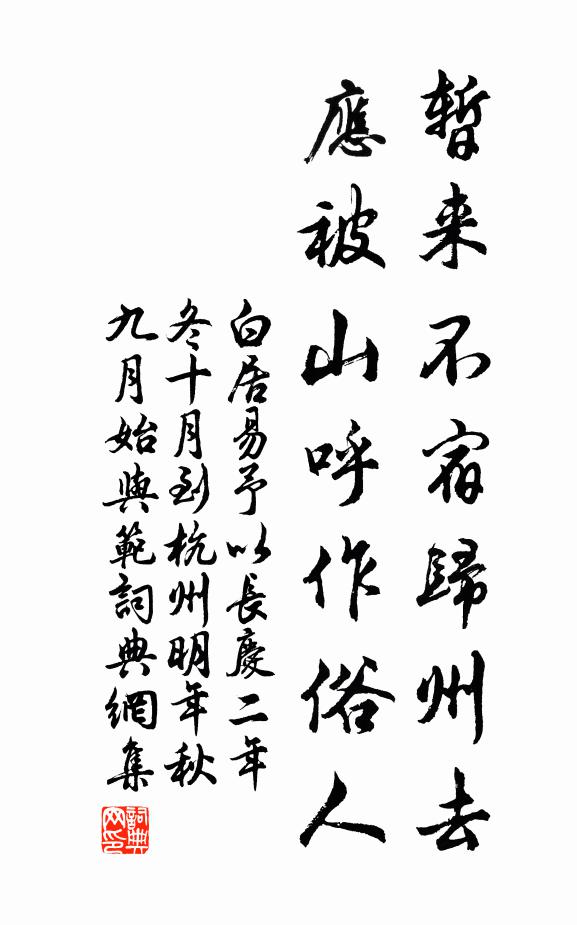 暫来不宿歸州去
應被山呼作俗人
白居易予以長慶二年
冬十月到杭州明年秋
九月始與範詞典網集
詞典
网印